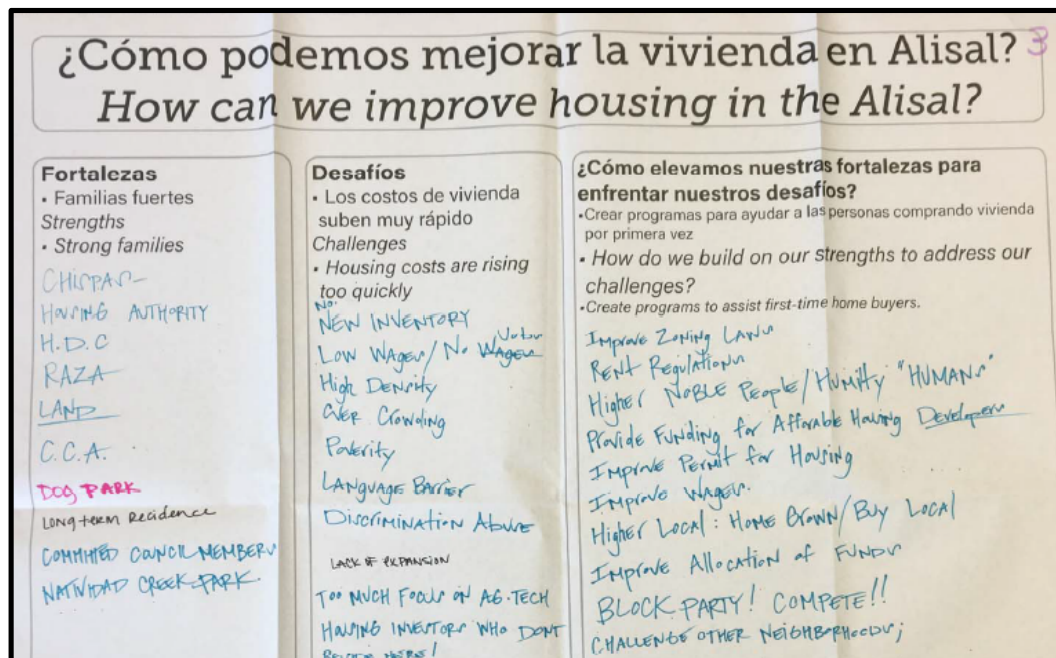 ¿Cómo podemos mejorar la vivienda en Alisal? 3
How can we improve housing in the Alisal?
Fortalezas
• Familias fuertes
Strengths
• Strong families
CHISPAS-
HOUSING AUTHORITY
H.D.C
RAZA
LAND
C.C.A.
DOG PARK
LONG TERM RECIDENCE
COMMITED COUNCIL MEMBERS
NATIVIDAD CREEK PARK.
Desafíos
• Los costos de vivienda
suben muy rápido
Challenges
• Housing costs are rising
too quickly
No.
NEW INVENTORY
Low Wages/ No Wages
High Density
Over Crowding
Poverity
Language Barrier
Discrimination Abuse
LACK OF EXPANSION
TOO MUCH FOCUS ON AG-TECH
HOUSING INVESTORS WHO DONT
HERE!
¿Cómo elevamos nuestras fortalezas para
enfrentar nuestros desafíos?
•Crear programas para ayudar a las personas comprando vivienda
por primera vez
• How do we build on our strengths to address our
challenges?
•Create programs to assist first-time home buyers.
Improve Zoning Laws
Rent Regulations
Higher Noble People/Humilty "HUMANS"
Provide Funding for Afforable Housing Developers
Improve Permit for Housing
Improve Wages.
Higher Local: Home Grown/Buy Local
Improve Allocation of Funds
BLOCK PARTY! COMPETE!!
CHALLENGE OTHER NEIGHBORHOODS;